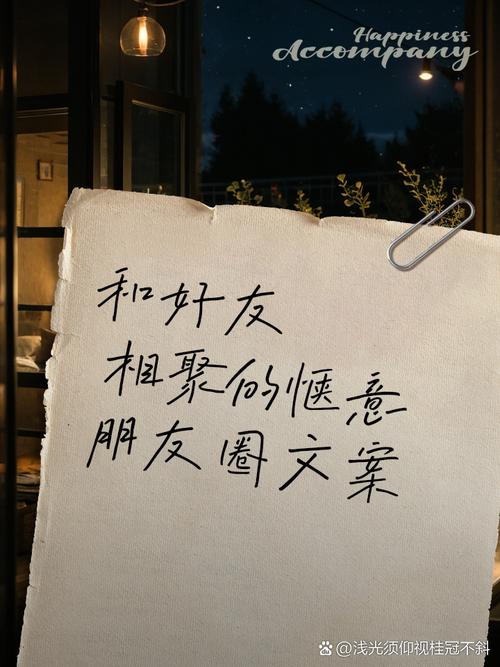 Happiness
Accompany
和好友
相聚的惬意
朋友圈文案
@浅光须仰视桂冠不斜